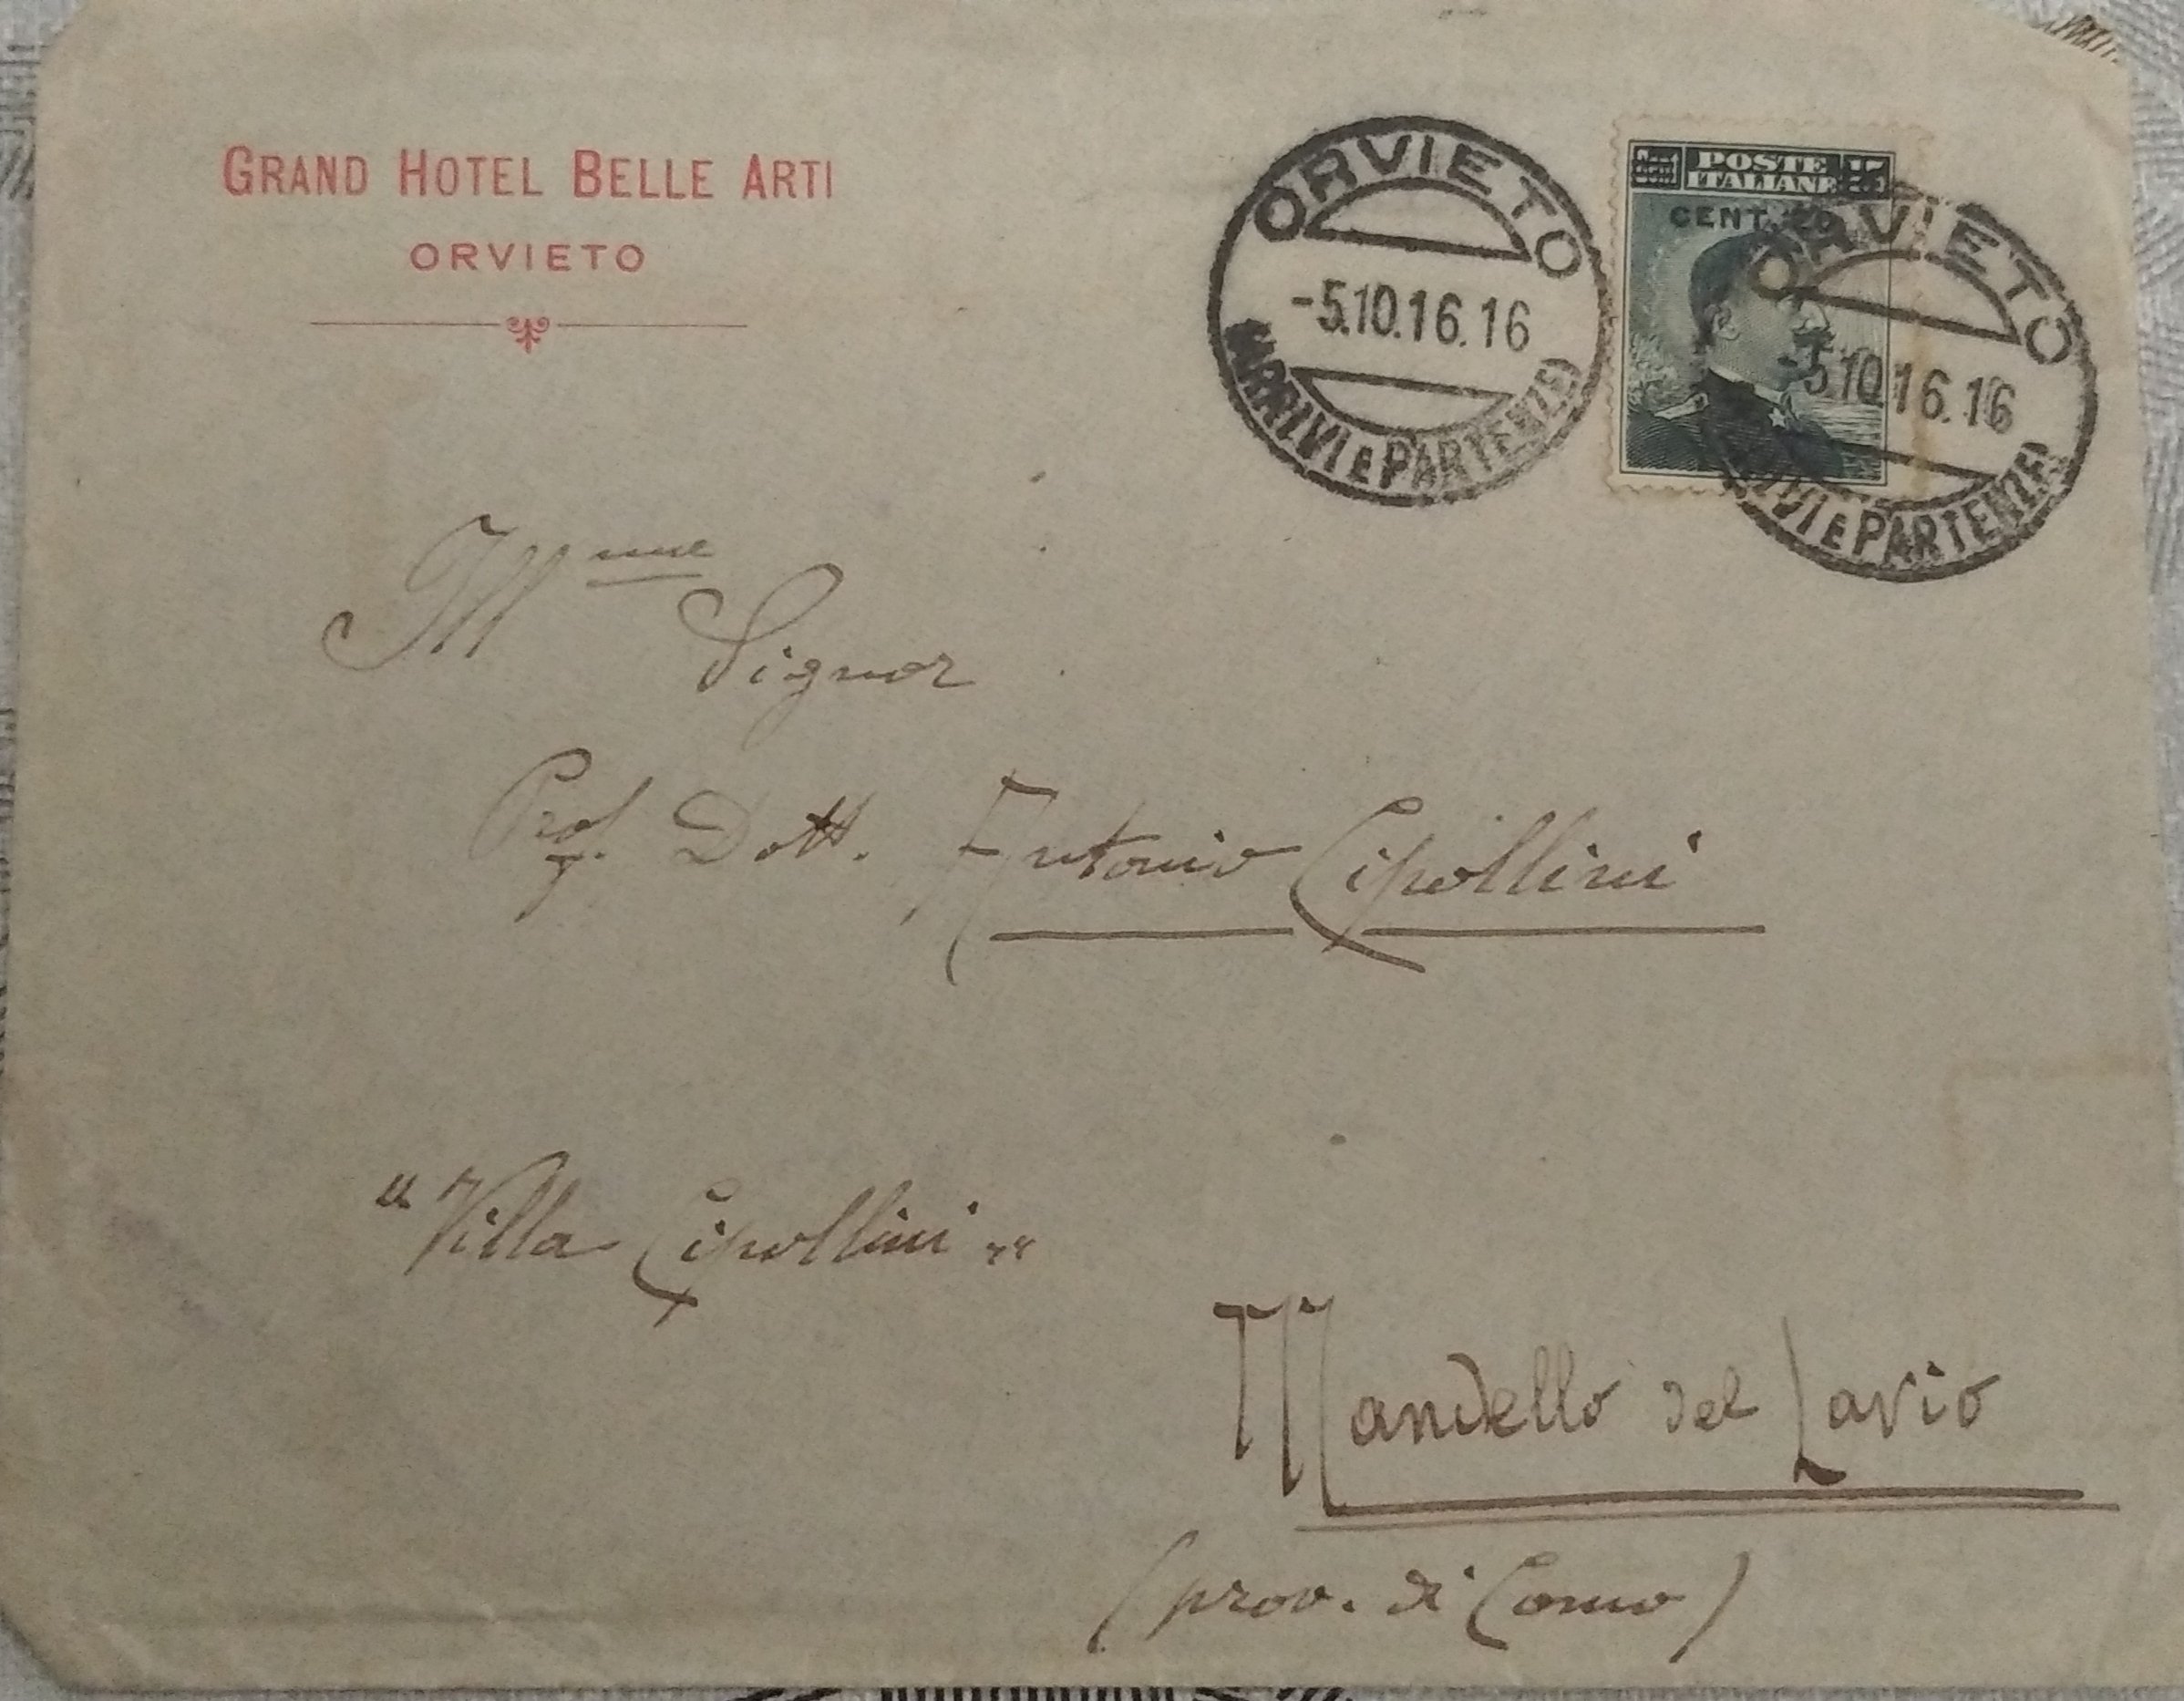 GRAND HOTEL BELLE ARTI
ORVIETO
ORVIETO
-5.10.16.16
(ARRIVI E PARTENZE)
POSTE
ITALIANE
15
CENT. 20
ORVIETO
-5.10.16.16
IVI E PARTENZE)
Ill
Signor
Prof. Dott. Antonio Cipollini
"Villa Cipollini"
Mandello del Lario
(prov. di Como)